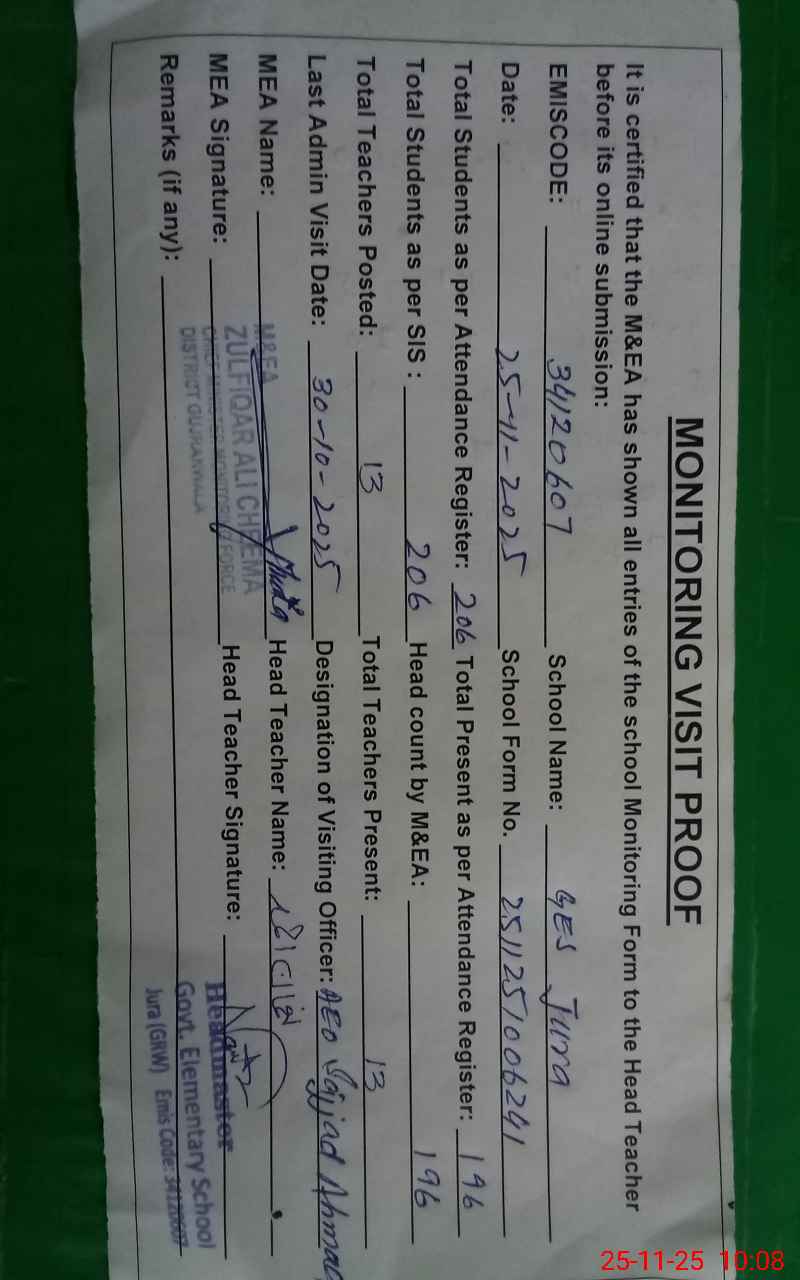 MONITORING VISIT PROOF
It is certified that the M&EA has shown all entries of the school Monitoring Form to the Head Teacher
before its online submission:
EMISCODE: 34120607 School Name: GES Jurra
Date: 25-11-2025 School Form No. 2511251006241
Total Students as per Attendance Register: 206 Total Present as per Attendance Register: 196
Total Students as per SIS : 206 Head count by M&EA: 196
Total Teachers Posted: 13 Total Teachers Present: 13
Last Admin Visit Date: 30-10-2025 Designation of Visiting Officer: AEO Sajjad Ahmad
MEA Name: Head Teacher Name:
M&EA
ZULFIQAR ALI CHEEMA
CHIEF MINISTER MONITORING FORCE
DISTRICT GUJRANWALA
MEA Signature: Head Teacher Signature:
Remarks (if any):
Headmaster
Govt. Elementary School
Jura (GRW) Emis Code: 34120607
25-11-25 10:08